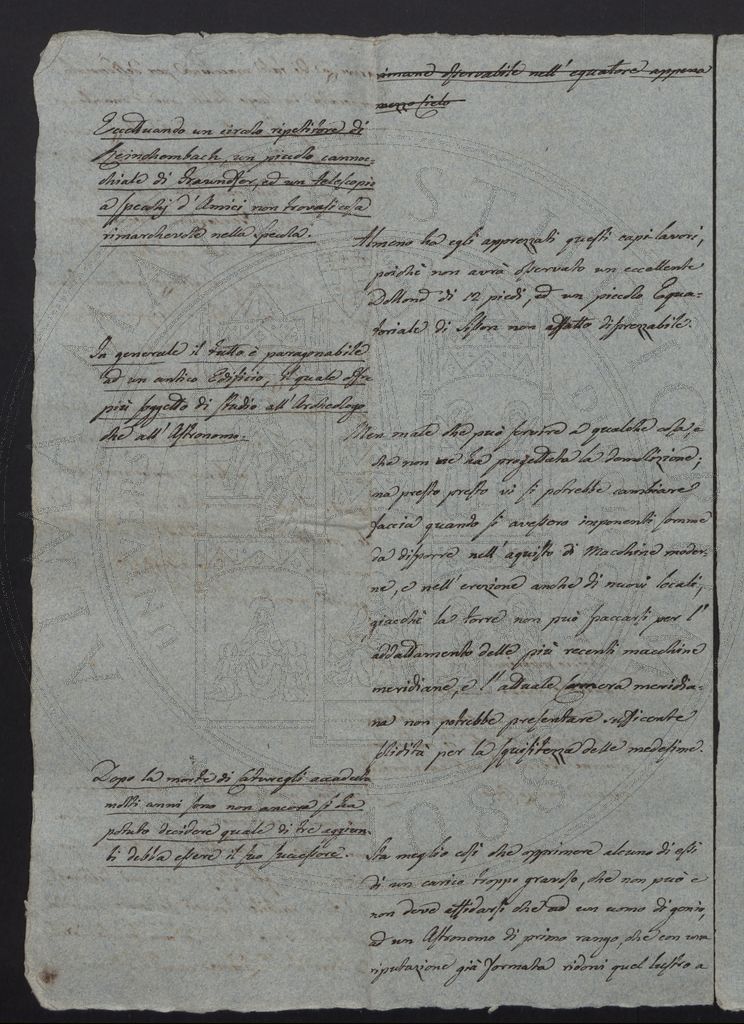 rimane osservabile nell' equatore appena
mezzo Cielo
Eccettuando un circolo ripetitore di
Reinchembach, un piccolo cannoc=
chiale di Fraundfer, ed un telescopio
a specchj d'Amici non trovasi cosa
rimarchevole nella specola.
Almeno ha egli apprezzati questi capi lavori,
poichè non avrà osservato un eccellente
Dollond di 12 piedi, ed un piccolo Equa=
toriale di Sisson non affatto disprezzabile.
In generale il tutto è paragonabile
ad un antico Edificio, il quale offre
più soggetto di studio all' Archeologo
che all' Astronomo.
Men male che può servire a qualche cosa, e
che non ne ha progettata la demolizione;
ma presto presto vi si potrebbe cambiare
faccia quando si avessero imponenti somme
da disporre nell' aquisto di Macchine moder=
ne, e nell' erezione anche di nuovi locali,
giacchè la torre non può spaccarsi per l'
addattamento delle più recenti macchine
meridiane, e l' attuale Camera meridia=
na non potrebbe presentare sufficente
solidità per la squisitezza delle medesime.
Dopo la morte di Caturegli accaduta
molti anni sono non ancora si ha
potuto decidere quale di tre aggiun=
ti debba essere il suo successore.
Sta meglio così che opprimere alcuno di essi
di un carico troppo gravoso, che non può e
non deve affidarsi che ad un uomo di genio,
ad un Astronomo di primo rango, che con una
riputazione già formata ridoni quel lustro a